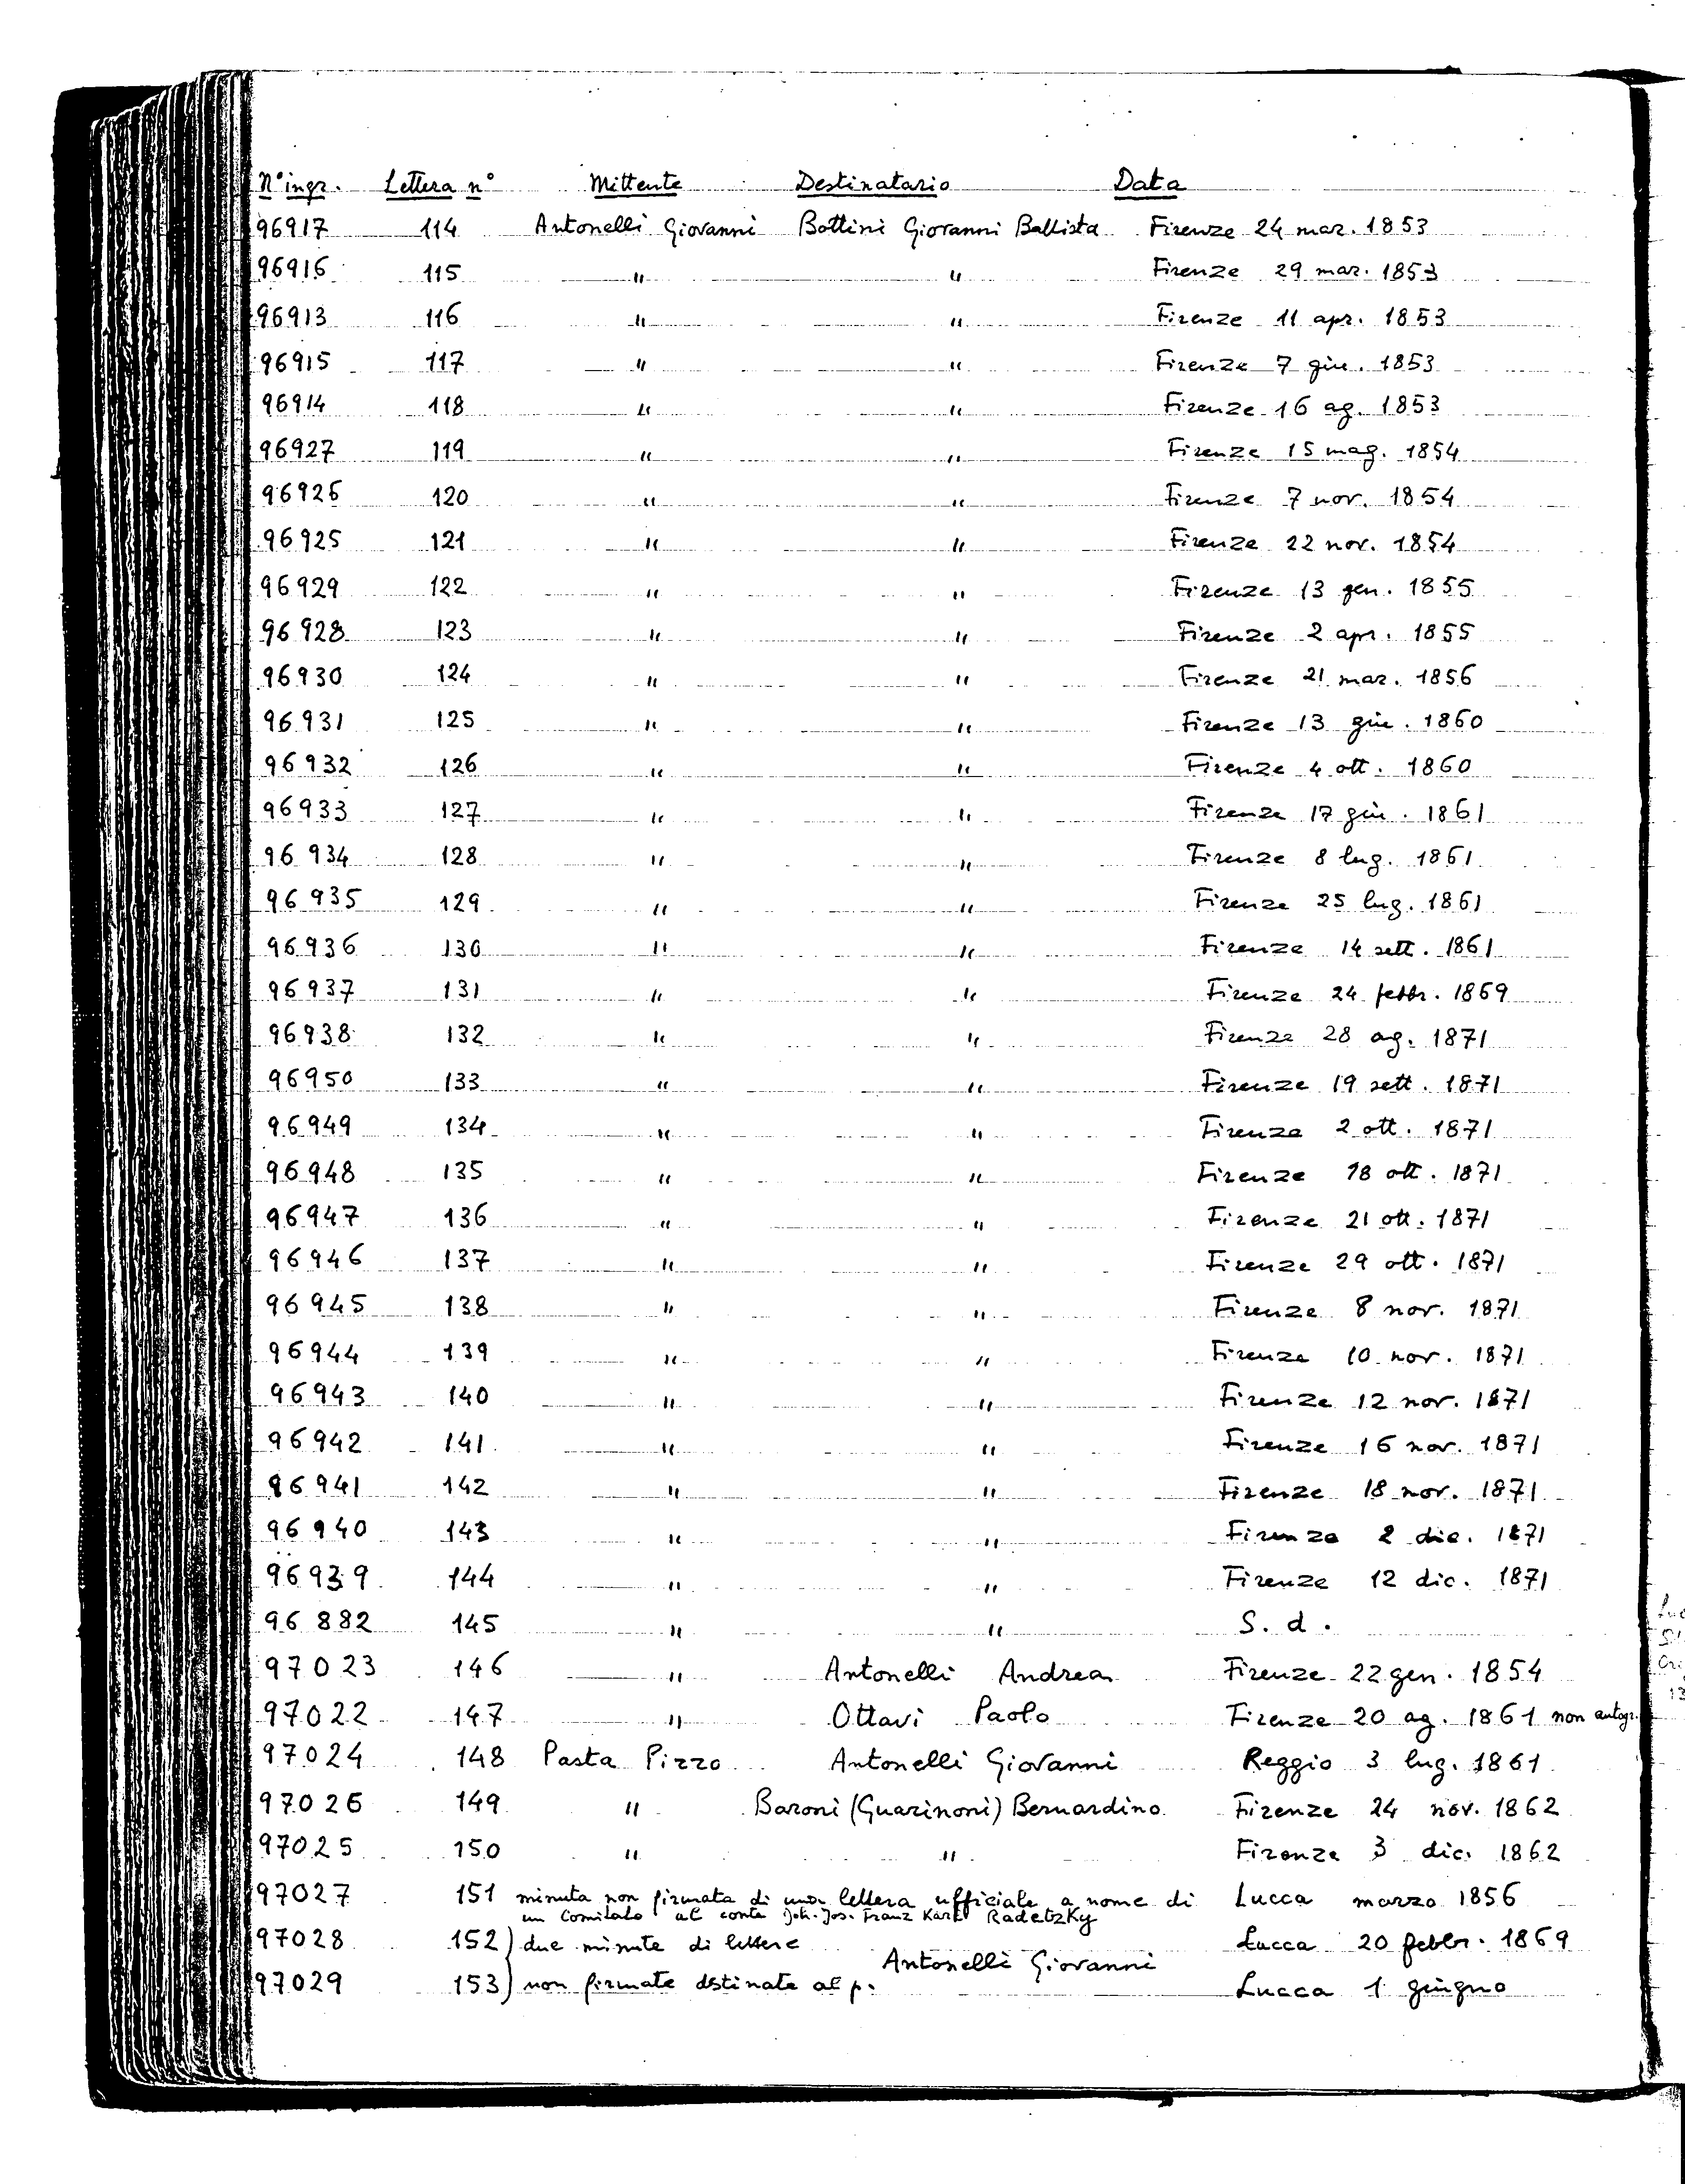 N° ingr. Lettera n° Mittente Destinatario Data
96917 114 Antonelli Giovanni Bottini Giovanni Battista Firenze 24 mar. 1853
96916 115 " " Firenze 29 mar. 1853
96913 116 " " Firenze 11 apr. 1853
96915 117 " " Firenze 7 giu. 1853
96914 118 " " Firenze 16 ag. 1853
96927 119 " " Firenze 15 mag. 1854
96926 120 " " Firenze 7 nov. 1854
96925 121 " " Firenze 22 nov. 1854
96929 122 " " Firenze 13 gen. 1855
96928 123 " " Firenze 2 apr. 1855
96930 124 " " Firenze 21 mar. 1856
96931 125 " " Firenze 13 giu. 1860
96932 126 " " Firenze 4 ott. 1860
96933 127 " " Firenze 17 giu. 1861
96934 128 " " Firenze 8 lug. 1861
96935 129 " " Firenze 25 lug. 1861
96936 130 " " Firenze 14 sett. 1861
96937 131 " " Firenze 24 febbr. 1869
96938 132 " " Firenze 28 ag. 1871
96950 133 " " Firenze 19 sett. 1871
96949 134 " " Firenze 2 ott. 1871
96948 135 " " Firenze 18 ott. 1871
96947 136 " " Firenze 21 ott. 1871
96946 137 " " Firenze 29 ott. 1871
96945 138 " " Firenze 8 nov. 1871
96944 139 " " Firenze 10 nov. 1871
96943 140 " " Firenze 12 nov. 1871
96942 141 " " Firenze 16 nov. 1871
96941 142 " " Firenze 18 nov. 1871
96940 143 " " Firenze 2 dic. 1871
96939 144 " " Firenze 12 dic. 1871
96882 145 " " S. d.
97023 146 " Antonelli Andrea Firenze 22 gen. 1854
97022 147 " Ottavi Paolo Firenze 20 ag. 1861 non autogr.
97024 148 Pasta Pizzo Antonelli Giovanni Reggio 3 lug. 1861
97026 149 " Baroni (Guarinoni) Bernardino Firenze 24 nov. 1862
97025 150 " " Firenze 3 dic. 1862
97027 151 minuta non firmata di una lettera ufficiale a nome di Lucca marzo 1856
un Comitato al conte Joh. Jos. Franz Karl Radetzky
97028 152) due minute di lettere Lucca 20 febbr. 1869
Antonelli Giovanni
97029 153) non firmate dstinate al p. Lucca 1 giugno